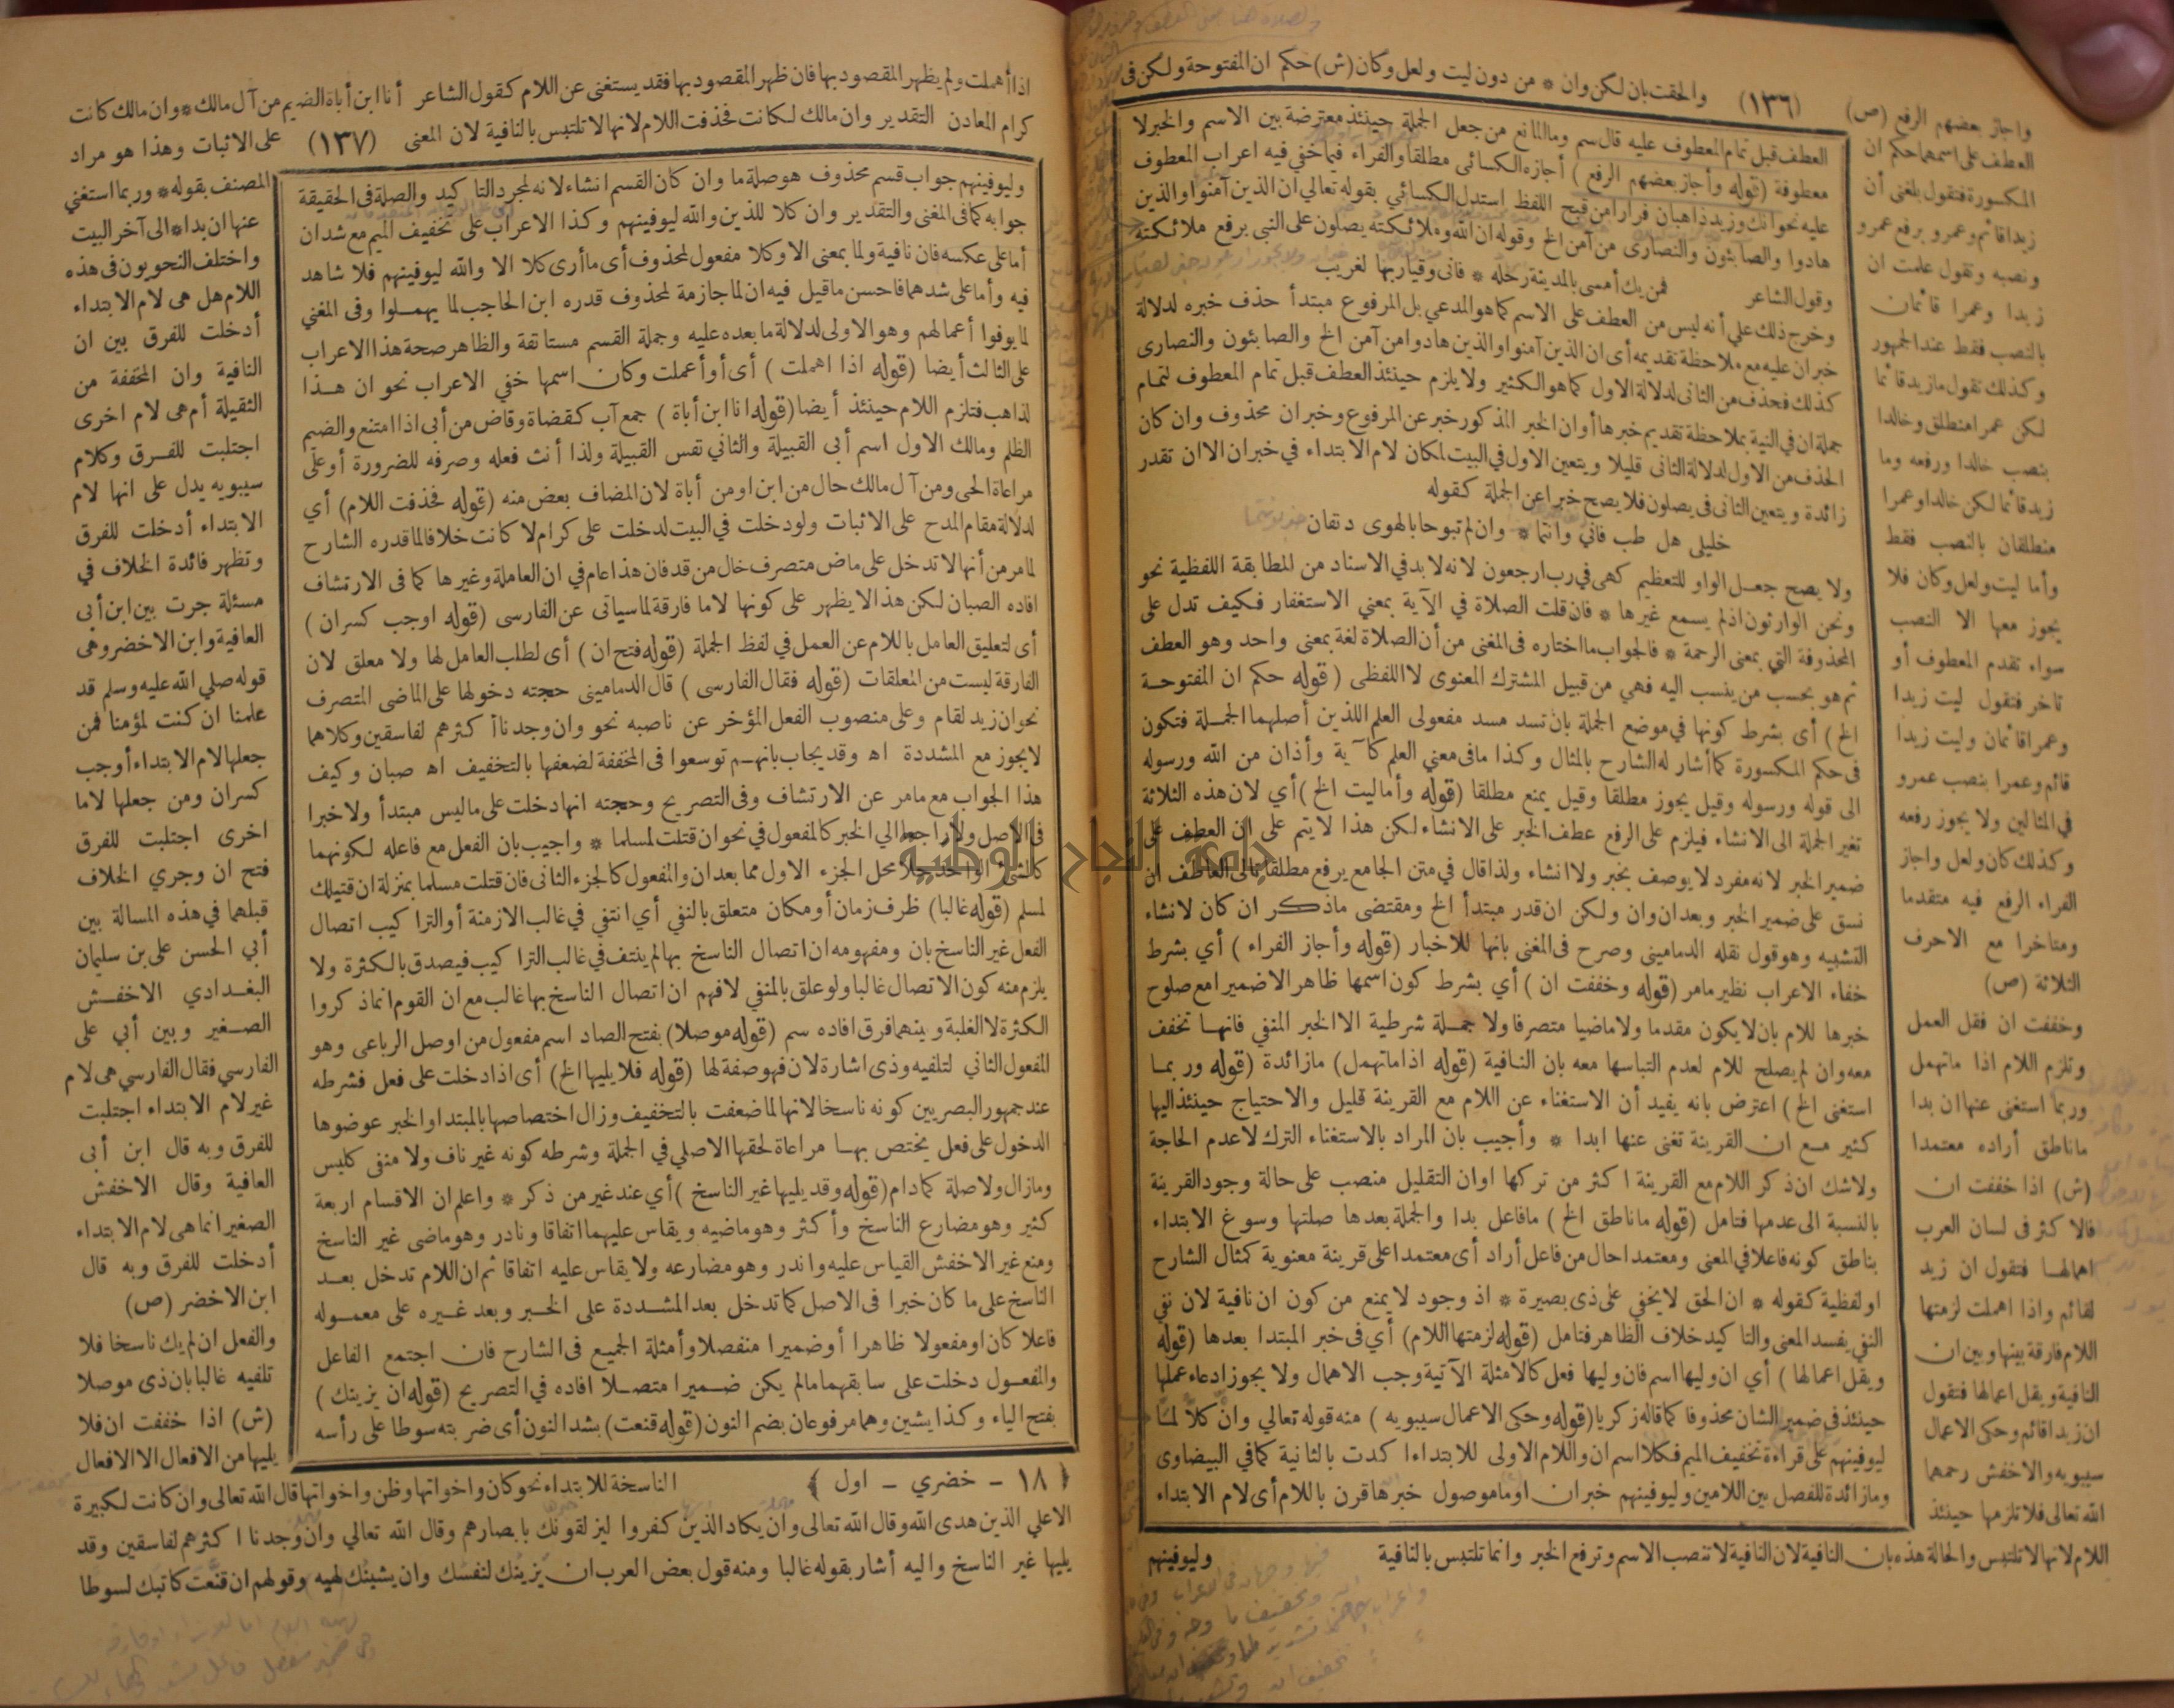 والحقت بان لكن وان * من دون ليت ولعل وكان (ش) حكم ان المفتوحة ولكن فى
(١٣٦)
واجاز بعضهم الرفع (ص)
العطف على اسمهما حكم ان
المكسورة فتقول بلغنى أن
زيدا قائم وعمرو برفع عمرو
ونصبه وتقول علمت ان
زيدا وعمرا قائمان
بالنصب فقط عند الجمهور
وكذلك تقول مازيد قائما
لكن عمرا منطلق وخالدا
بنصب خالدا ورفعه وما
زيد قائما لكن خالدا وعمرا
منطلقان بالنصب فقط
وأما ليت ولعل وكان فلا
يجوز معها الا النصب
سواء تقدم المعطوف أو
تاخر فتقول ليت زيدا
وعمرا قائمان وليت زيدا
قائم وعمرا بنصب عمرو
في المثالين ولا يجوز رفعه
وكذلك كان ولعل واجاز
الفراء الرفع فيه متقدما
ومتاخرا مع الاحرف
الثلاثة (ص)
وخففت ان فقل العمل
وتلزم اللام اذا ماتهمل
وربما استغنى عنها ان بدا
ماناطق أراده معتمدا
(ش) اذا خففت ان
فالا كثر فى لسان العرب
اهمالها فتقول ان زيد
لقائم واذا اهملت لزمتها
اللام فارقة بينها وبين ان
النافية ويقل اعمالها فتقول
ان زيدا قائم وحكى الاعمال
سيبويه والاخفش رحمهما
الله تعالى فلا تلزمها حينئذ
العطف قبل تمام المعطوف عليه قال سم وما المانع من جعل الجملة حينئذ معترضة بين الاسم والخبر لا
معطوفة (قوله وأجاز بعضهم الرفع) أجازه الكسائى مطلقا والفراء فيما خفي فيه اعراب المعطوف
عليه نحو انك وزيد ذاهبان فرارا من قبح اللفظ استدل الكسائي بقوله تعالى ان الذين آمنوا والذين
هادوا والصابئون والنصارى من آمن الخ وقوله ان الله وملائكته يصلون على النبى برفع ملائكته
وقول الشاعر فمن يك أمسى بالمدينة رحله * فانى وقيار بها لغريب
وخرج ذلك على أنه ليس من العطف على الاسم كما هو المدعي بل المرفوع مبتدأ حذف خبره لدلالة
خبر ان عليه مع ملاحظة تقديمه أى ان الذين آمنوا والذين هادوا من آمن الخ والصابئون والنصارى
كذلك فحذف من الثانى لدلالة الاول كما هو الكثير ولا يلزم حينئذ العطف قبل تمام المعطوف لتمام
جملة ان في النية بملاحظة تقديم خبرها أو ان الخبر المذكور خبر عن المرفوع وخبر ان محذوف وان كان
الحذف من الاول لدلالة الثانى قليلا ويتعين الاول في البيت لمكان لام الابتداء في خبر ان الا ان تقدر
زائدة ويتعين الثانى فى يصلون فلا يصح خبرا عن الجملة كقوله
خليلى هل طب فاني وانتما * وان لم تبوحا بالهوى دنفان
ولا يصح جعل الواو للتعظيم كهى في رب ارجعون لانه لا بد في الاسناد من المطابقة اللفظية نحو
ونحن الوارثون اذ لم يسمع غيرها * فان قلت الصلاة في الآية بمعني الاستغفار فكيف تدل على
المحذوفة التي بمعنى الرحمة * فالجواب ما اختاره فى المغنى من أن الصلاة لغة بمعنى واحد وهو العطف
ثم هو بحسب من ينسب اليه فهي من قبيل المشترك المعنوى لا اللفظى (قوله حكم ان المفتوحة
الخ) أى بشرط كونها في موضع الجملة بان تسد مسد مفعولى العلم اللذين أصلهما الجملة فتكون
فى حكم المكسورة كما أشار له الشارح بالمثال وكذا مافى معني العلم كآية وأذان من الله ورسوله
الى قوله ورسوله وقيل يجوز مطلقا وقيل يمنع مطلقا (قوله وأما ليت الخ) أي لان هذه الثلاثة
تغير الجملة الى الانشاء فيلزم على الرفع عطف الخبر على الانشاء لكن هذا لا يتم على ان العطف على
ضمير الخبر لانه مفرد لا يوصف بخبر ولا انشاء ولذا قال في متن الجامع يرفع مطلقا تالى العاطف ان
نسق على ضمير الخبر وبعد ان وان ولكن ان قدر مبتدأ الخ ومقتضى ماذكر ان كان لانشاء
التشبيه وهو قول نقله الدمامينى وصرح فى المغنى بانها للاخبار (قوله وأجاز الفراء) أي بشرط
خفاء الاعراب نظير مامر (قوله وخففت ان) أي بشرط كون اسمها ظاهرا لا ضميرا مع صلوح
خبرها للام بان لا يكون مقدما ولا ماضيا متصرفا ولا جملة شرطية الا الخبر المنفي فانها تخفف
معه وان لم يصلح للام لعدم التباسها معه بان النافية (قوله اذا ماتهمل) مازائدة (قوله وربما
استغنى الخ) اعترض بانه يفيد أن الاستغناء عن اللام مع القرينة قليل والاحتياج حينئذ اليها
كثير مع ان القرينة تغنى عنها ابدا * وأجيب بان المراد بالاستغناء الترك لا عدم الحاجة
ولا شك ان ذكر اللام مع القرينة اكثر من تركها او ان التقليل منصب على حالة وجود القرينة
بالنسبة الى عدمها فتامل (قوله ماناطق الخ) مافاعل بدا والجملة بعدها صلتها وسوغ الابتداء
بناطق كونه فاعلا في المعنى ومعتمدا حال من فاعل أراد أى معتمدا على قرينة معنوية كمثال الشارح
او لفظية كقوله * ان الحق لا يخفي على ذى بصيرة * اذ وجود لا يمنع من كون ان نافية لان نفي
النفي يفسد المعنى والتاكيد خلاف الظاهر فتامل (قوله لزمتها اللام) أي فى خبر المبتدا بعدها (قوله
ويقل اعمالها) أي ان وليها اسم فان وليها فعل كالامثلة الآتية وجب الاهمال ولا يجوز ادعاء عملها
حينئذ فى ضمير الشان محذوفا كما قاله زكريا (قوله وحكى الاعمال سيبويه) منه قوله تعالي وان كلا لما
ليوفينهم على قراءة تخفيف الميم فكلا اسم ان واللام الاولى للابتداء اكدت بالثانية كما في البيضاوى
ومازائدة للفصل بين اللامين وليوفينهم خبر ان اوماموصول خبرها قرن باللام أى لام الابتداء
اللام لانها لا تلتبس والحالة هذه بان النافية لان النافية لا تنصب الاسم وترفع الخبر وانما تلتبس بالنافية
وليوفينهم
اذا أهملت ولم يظهر المقصود بها فان ظهر المقصود بها فقد يستغنى عن اللام كقول الشاعر أنا ابن أباة الضيم من آل مالك * وان مالك كانت
كرام المعادن التقدير وان مالك لكانت فحذفت اللام لانها لا تلتبس بالنافية لان المعنى (١٣٧) على الاثبات وهذا هو مراد
المصنف بقوله * وربما استغني
عنها ان بدا * الى آخر البيت
واختلف النحويون فى هذه
اللام هل هى لام الابتداء
أدخلت للفرق بين ان
النافية وان المخففة من
الثقيلة أم هى لام اخرى
اجتلبت للفرق وكلام
سيبويه يدل على انها لام
الابتداء أدخلت للفرق
وتظهر فائدة الخلاف في
مسئلة جرت بين ابن أبى
العافية وابن الاخضر وهى
قوله صلى الله عليه وسلم قد
علمنا ان كنت لمؤمنا فمن
جعلها لام الابتداء أوجب
كسران ومن جعلها لاما
اخرى اجتلبت للفرق
فتح ان وجري الخلاف
قبلهما في هذه المسالة بين
أبي الحسن على بن سليمان
البغدادي الاخفش
الصغير وبين أبي على
الفارسي فقال الفارسي هى لام
غير لام الابتداء اجتلبت
للفرق وبه قال ابن أبى
العافية وقال الاخفش
الصغير انما هى لام الابتداء
أدخلت للفرق وبه قال
ابن الاخضر (ص)
والفعل ان لم يك ناسخا فلا
تلفيه غالبا بان ذى موصلا
(ش) اذا خففت ان فلا
يليها من الافعال الا الافعال
وليوفينهم جواب قسم محذوف هو صلة ما وان كان القسم انشاء لانه لمجرد التاكيد والصلة فى الحقيقة
جوابه كما فى المغنى والتقدير وان كلا للذين والله ليوفينهم وكذا الاعراب على تخفيف الميم مع شد ان
أما على عكسه فان نافية ولما بمعنى الا وكلا مفعول لمحذوف أى ما أرى كلا الا والله ليوفينهم فلا شاهد
فيه وأما على شدهما فاحسن ماقيل فيه ان لما جازمة لمحذوف قدره ابن الحاجب لما يهملوا وفى المغني
لما يوفوا أعمالهم وهو الاولى لدلالة ما بعده عليه وجملة القسم مستانفة والظاهر صحة هذا الاعراب
على الثالث أيضا (قوله اذا اهملت) أى أو أعملت وكان اسمها خفي الاعراب نحو ان هذا
لذاهب فتلزم اللام حينئذ أيضا (قوله انا ابن أباة) جمع آب كقضاة وقاض من أبى اذا امتنع والضيم
الظلم ومالك الاول اسم أبى القبيلة والثاني نفس القبيلة ولذا أنث فعله وصرفه للضرورة أو على
مراعاة الحى ومن آل مالك حال من ابن او من أباة لان المضاف بعض منه (قوله فحذفت اللام) أي
لدلالة مقام المدح على الاثبات ولو دخلت في البيت لدخلت على كرام لا كانت خلافا لما قدره الشارح
لما مر من أنها لا تدخل على ماض متصرف خال من قد فان هذا عام في ان العاملة وغيرها كما فى الارتشاف
افاده الصبان لكن هذا لا يظهر على كونها لاما فارقة لما سياتى عن الفارسى (قوله اوجب كسران)
أى لتعليق العامل باللام عن العمل في لفظ الجملة (قوله فتح ان) أى لطلب العامل لها ولا معلق لان
الفارقة ليست من المعلقات (قوله فقال الفارسى) قال الدمامينى حجته دخولها على الماضى المتصرف
نحو ان زيد لقام وعلى منصوب الفعل المؤخر عن ناصبه نحو وان وجدنا أكثرهم لفاسقين وكلاهما
لا يجوز مع المشددة اه وقد يجاب بانهم توسعوا فى المخففة لضعفها بالتخفيف اه صبان وكيف
هذا الجواب مع مامر عن الارتشاف وفى التصريح وحجته انها دخلت على ماليس مبتدأ ولا خبرا
فى الاصل ولا راجعا الي الخبر كالمفعول في نحو ان قتلت لمسلما * واجيب بان الفعل مع فاعله لكونهما
كالشئ الواحد حلا محل الجزء الاول مما بعد ان والمفعول كالجزء الثانى فان قتلت مسلما بمنزلة ان قتيلك
لمسلم (قوله غالبا) ظرف زمان أو مكان متعلق بالنفي أي انتفي في غالب الازمنة أو التراكيب اتصال
الفعل غير الناسخ بان ومفهومه ان اتصال الناسخ بها لم ينتف في غالب التراكيب فيصدق بالكثرة ولا
يلزم منه كون الاتصال غالبا ولو علق بالمنفي لافهم ان اتصال الناسخ بها غالب مع ان القوم انما ذكروا
الكثرة لا الغلبة وبينهما فرق افاده سم (قوله موصلا) بفتح الصاد اسم مفعول من اوصل الرباعى وهو
المفعول الثاني لتلفيه وذى اشارة لان فهو صفة لها (قوله فلا يليها الخ) أى اذا دخلت على فعل فشرطه
عند جمهور البصريين كونه ناسخا لانها لما ضعفت بالتخفيف وزال اختصاصها بالمبتدا والخبر عوضوها
الدخول على فعل يختص بهما مراعاة لحقها الاصلي في الجملة وشرطه كونه غير ناف ولا منفى كليس
ومازال ولا صلة كمادام (قوله وقد يليها غير الناسخ) أي عند غير من ذكر * واعلم ان الاقسام اربعة
كثير وهو مضارع الناسخ وأكثر وهو ماضيه ويقاس عليهما اتفاقا ونادر وهو ماضى غير الناسخ
ومنع غير الاخفش القياس عليه واندر وهو مضارعه ولا يقاس عليه اتفاقا ثم ان اللام تدخل بعد
الناسخ على ما كان خبرا فى الاصل كما تدخل بعد المشددة على الخبر وبعد غيره على معموله
فاعلا كان او مفعولا ظاهرا أو ضميرا منفصلا وأمثلة الجميع فى الشارح فان اجتمع الفاعل
والمفعول دخلت على سابقهما مالم يكن ضميرا متصلا افاده في التصريح (قوله ان يزينك)
بفتح الياء وكذا يشين وهما مرفوعان بضم النون (قوله قنعت) بشد النون أى ضربته سوطا على رأسه
﴿ ١٨ - خضري - اول ﴾
الناسخة للابتداء نحو كان واخواتها وظن واخواتها قال الله تعالى وان كانت لكبيرة
الا علي الذين هدى الله وقال الله تعالى وان يكاد الذين كفروا ليزلقونك بابصارهم وقال الله تعالي وان وجدنا اكثرهم لفاسقين وقد
يليها غير الناسخ واليه أشار بقوله غالبا ومنه قول بعض العرب ان يزينك لنفسك وان يشينك لهيه وقولهم ان قنعت كاتبك لسوطا
جامعة النجاح الوطنية